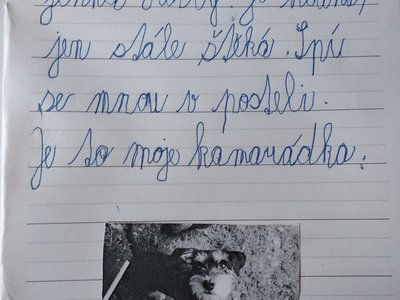 jen stále štěká. Spí
se mnou v posteli.
Je to moje kamarádka.